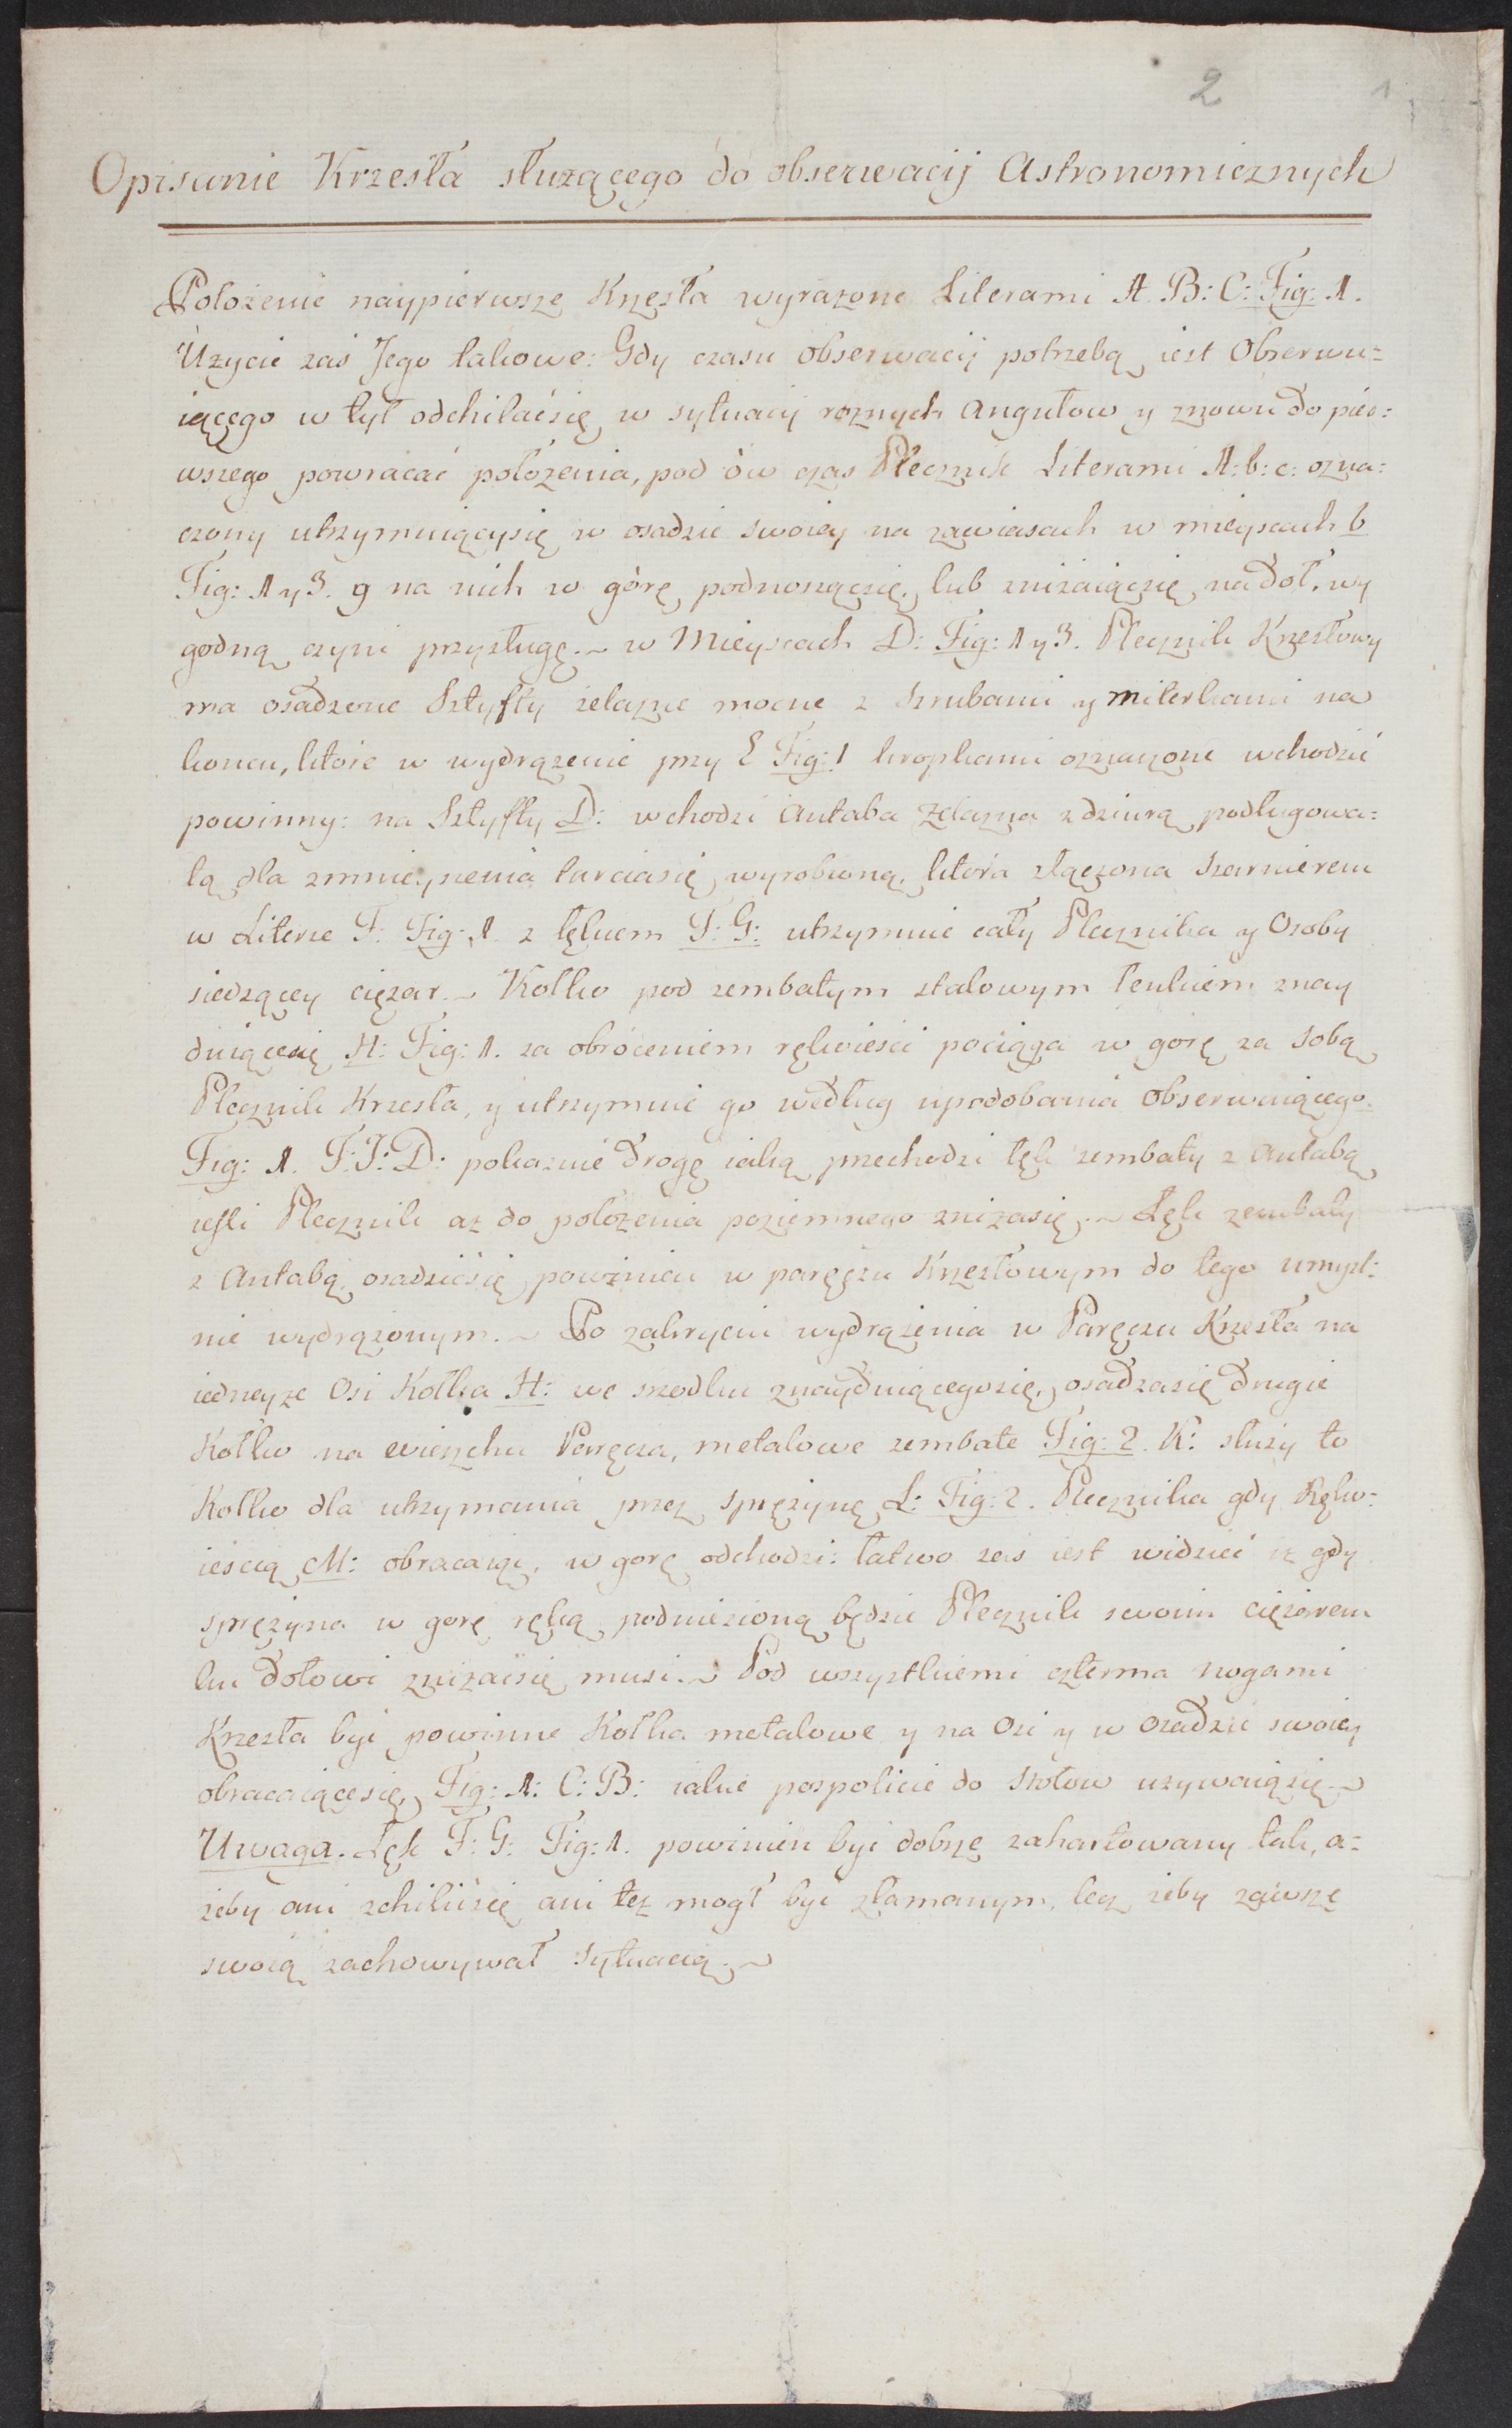 2
1
Opisanie Krzesła słuzącego do obserwacij Astronomicznych
Położenie naypierwsze Krzesła wyrazone Literami A. B: C: Fig: 1.
Użycie zaś Jego takowe: Gdy czasu obserwacij potrzebą iest Obserwu=
iącego w tył odchilaćsię w sytuacij roznych Angułow y znowu do pier=
wszego powracać położenia, pod ów czas Plecznik Literami A: b: c: ozna=
czony utrzymuiącysię w osadzie swoiey na zawiasach w mieyscach b
Fig: 1 y 3. g na nich w górę podnosząsię, lub zniżaiącsię na doł, wy
godną czyni przysługę.~ w Mieyscach D: Fig: 1 y 3. Plecznik Krzesłowy
ma osadzone Sztyfty żelazne mocne z szrubami y miterkami na
koncu, ktore w wydrązenie przy E Fig: 1 kropkami oznaczone wchodzić
powinny: na Sztyfty D: wchodzi Antaba Zelazna z dziurą podługowa=
tą dla zmnieyszenia tarciasię wyrobioną, która złączona szarnierem
w Literze F: Fig: 1. z lękiem F: G: utrzymuie cały Plecznika y Osoby
siedzącey ciężar.~ Kołko pod zembatym stalowym lenkiem znay
duiącesię H: Fig: 1. za obróceniem rękoieści pociąga w gorę za sobą
Plecznik Krzesła, y utrzymuie go według upodobania Obserwuiącego.
Fig: 1. F: I: D: pokazuie drogę iaką przechodzi lęk zembaty z Antabą
ieśli Plecznik az do położenia poziemnego zniżasię.~ Lęk zembaty
z Antabą osadzićsię powinien w poręczu Krzesłowym do tego umyśl=
nie wydrążonym.~ Po zakryciu wydrążenia w Paręczu Krzesła na
iedneyze Osi Kołka H: we srodku znayduiącegosię, osadzasię drugie
Kołko na wierzchu Paręcza, metalowe zembate Fig: 2. K: służy to
Kołko dla utrzymania przez sprężynę L: Fig: 2. Plecznika gdy Ręko=
ieścią M: obracaiąc, w gorę odchodzi: łatwo zaś iest widzieć iż gdy
sprężyna w gorę ręką podniezioną będzie Plecznik swoim ciężarem
ku dołowi zniżaćsię musi.~ Pod wszystkiemi czterma nogami
Krzesła być powinne Kołka metalowe y na Osi y w Osadzie swoiey
obracaiącesię, Fig: 1: C: B: iakie pospolicie do stołow używaiąsię.~
Uwaga. Lęk F: G: Fig: 1. powinien być dobrze zahartowany tak, a=
żeby ani schilićsię ani też mogł być złamanym, lecz żeby zawsze
swoią zachowywał sytuacią.~